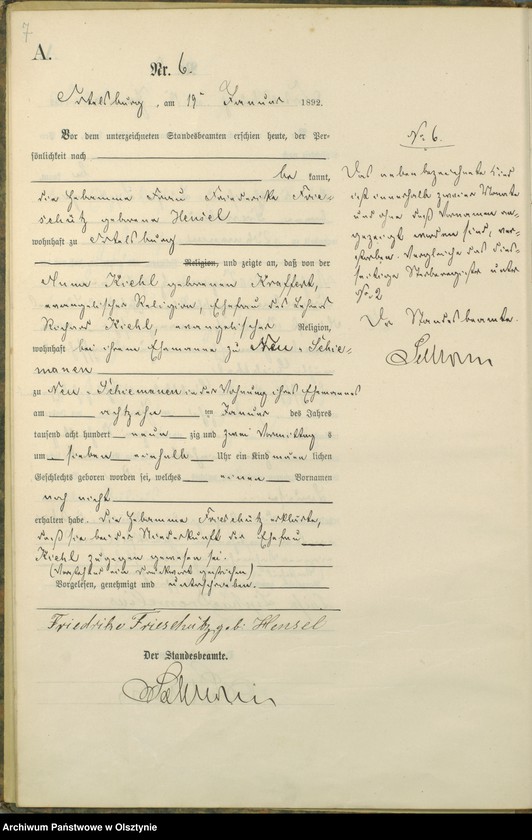 7
A.
Nr. 6.
Ortelsburg, am 19ten Januar 1892.
Vor dem unterzeichneten Standesbeamten erschien heute, der Per-
sönlichkeit nach
be kannt,
die Hebamme Frau Friederike Frie-
schütz geborene Hensel
wohnhaft zu Ortelsburg
Religion, und zeigte an, daß von der
Anna Kiehl geborenen Kraffert,
evangelischer Religion, Ehefrau des Lehrers
Richard Kiehl, evangelischer Religion,
wohnhaft bei ihrem Ehemanne zu Neu-Schie-
manen
zu Neu-Schiemanen in der Wohnung ihres Ehemannes
am achtzehn ten Januar des Jahres
tausend acht hundert neun zig und zwei Vormittag s
um sieben einhalb Uhr ein Kind männ lichen
Geschlechts geboren worden sei, welches einen Vornamen
noch nicht
erhalten habe. Die Hebamme Frieschütz erklärte,
daß sie bei der Niederkunft der Ehefrau
Kiehl zugegen gewesen sei.
(Vorstehend ein Druckwort gestrichen)
Vorgelesen, genehmigt und unterschrieben.
Friedrike Frieschütz geb: Hensel
Der Standesbeamte.
No 6.
Das nebenbezeichnete Kind
ist innerhalb zweier Monate
und ohne daß Vornamen an-
gezeigt worden sind, ver-
storben. Vergleiche das dies-
seitige Sterberegister unter
No. 2
Der Standesbeamte.
Archiwum Państwowe w Olsztynie